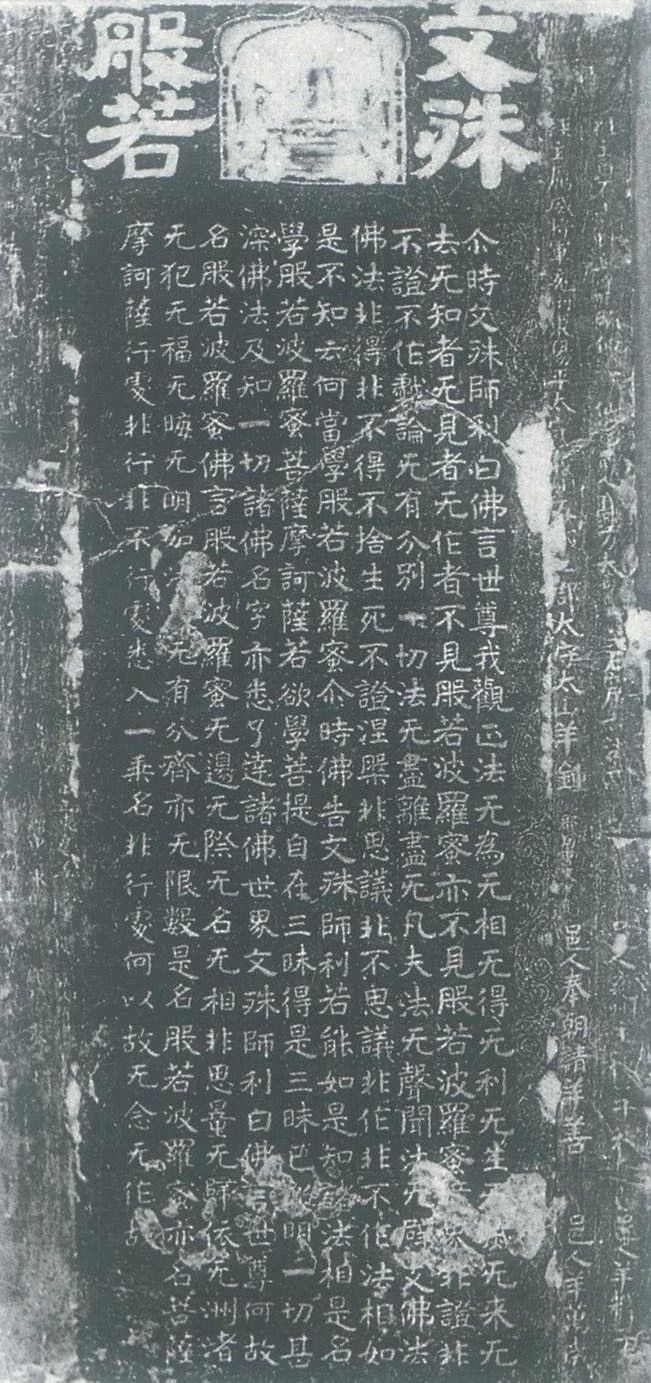 文殊
般若
尒時文殊師利白佛言世尊我觀正法无為无相无得无利无生无来无
去无知者无見者无作者不見般若波羅蜜亦不見般若波羅蜜非證非
不證不作戲論无有分別一切法无盡離盡无凡夫法无聲聞法无辟支佛法
佛法非得非不得不捨生死不證涅槃非思議非不思議非作非不作法相如
是不知云何當學般若波羅蜜尒時佛告文殊師利若能如是知諸法相是名
學般若波羅蜜菩薩摩訶薩若欲學菩提自在三昧得是三昧已明一切甚
深佛法及知一切諸佛名字亦悉了達諸佛世界文殊師利白佛言世尊何故
名般若波羅蜜佛言般若波羅蜜无邊无際无名无相非思量无歸依无洲渚
无犯无福无晦无明如法无有分齊亦无限數是名般若波羅蜜亦名菩薩
摩訶薩行處非行非不行處悉入一乘名非行處何以故无念无作故
太守太山羊釗 邑人奉朝請羊善 邑人羊
邑人羊